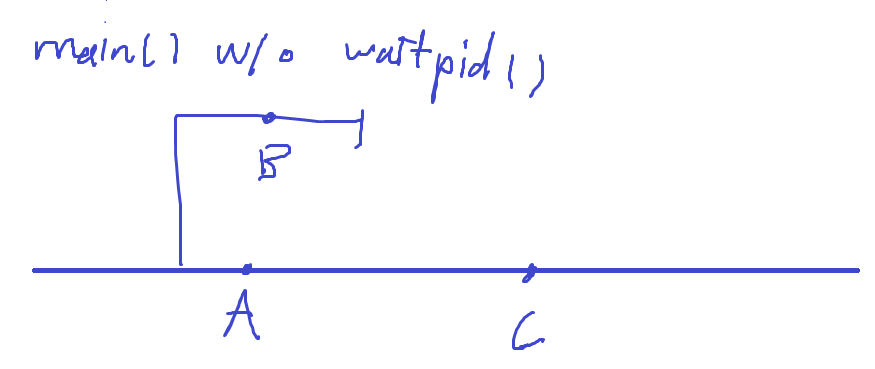 main() w/o waitpid()
B
A
C